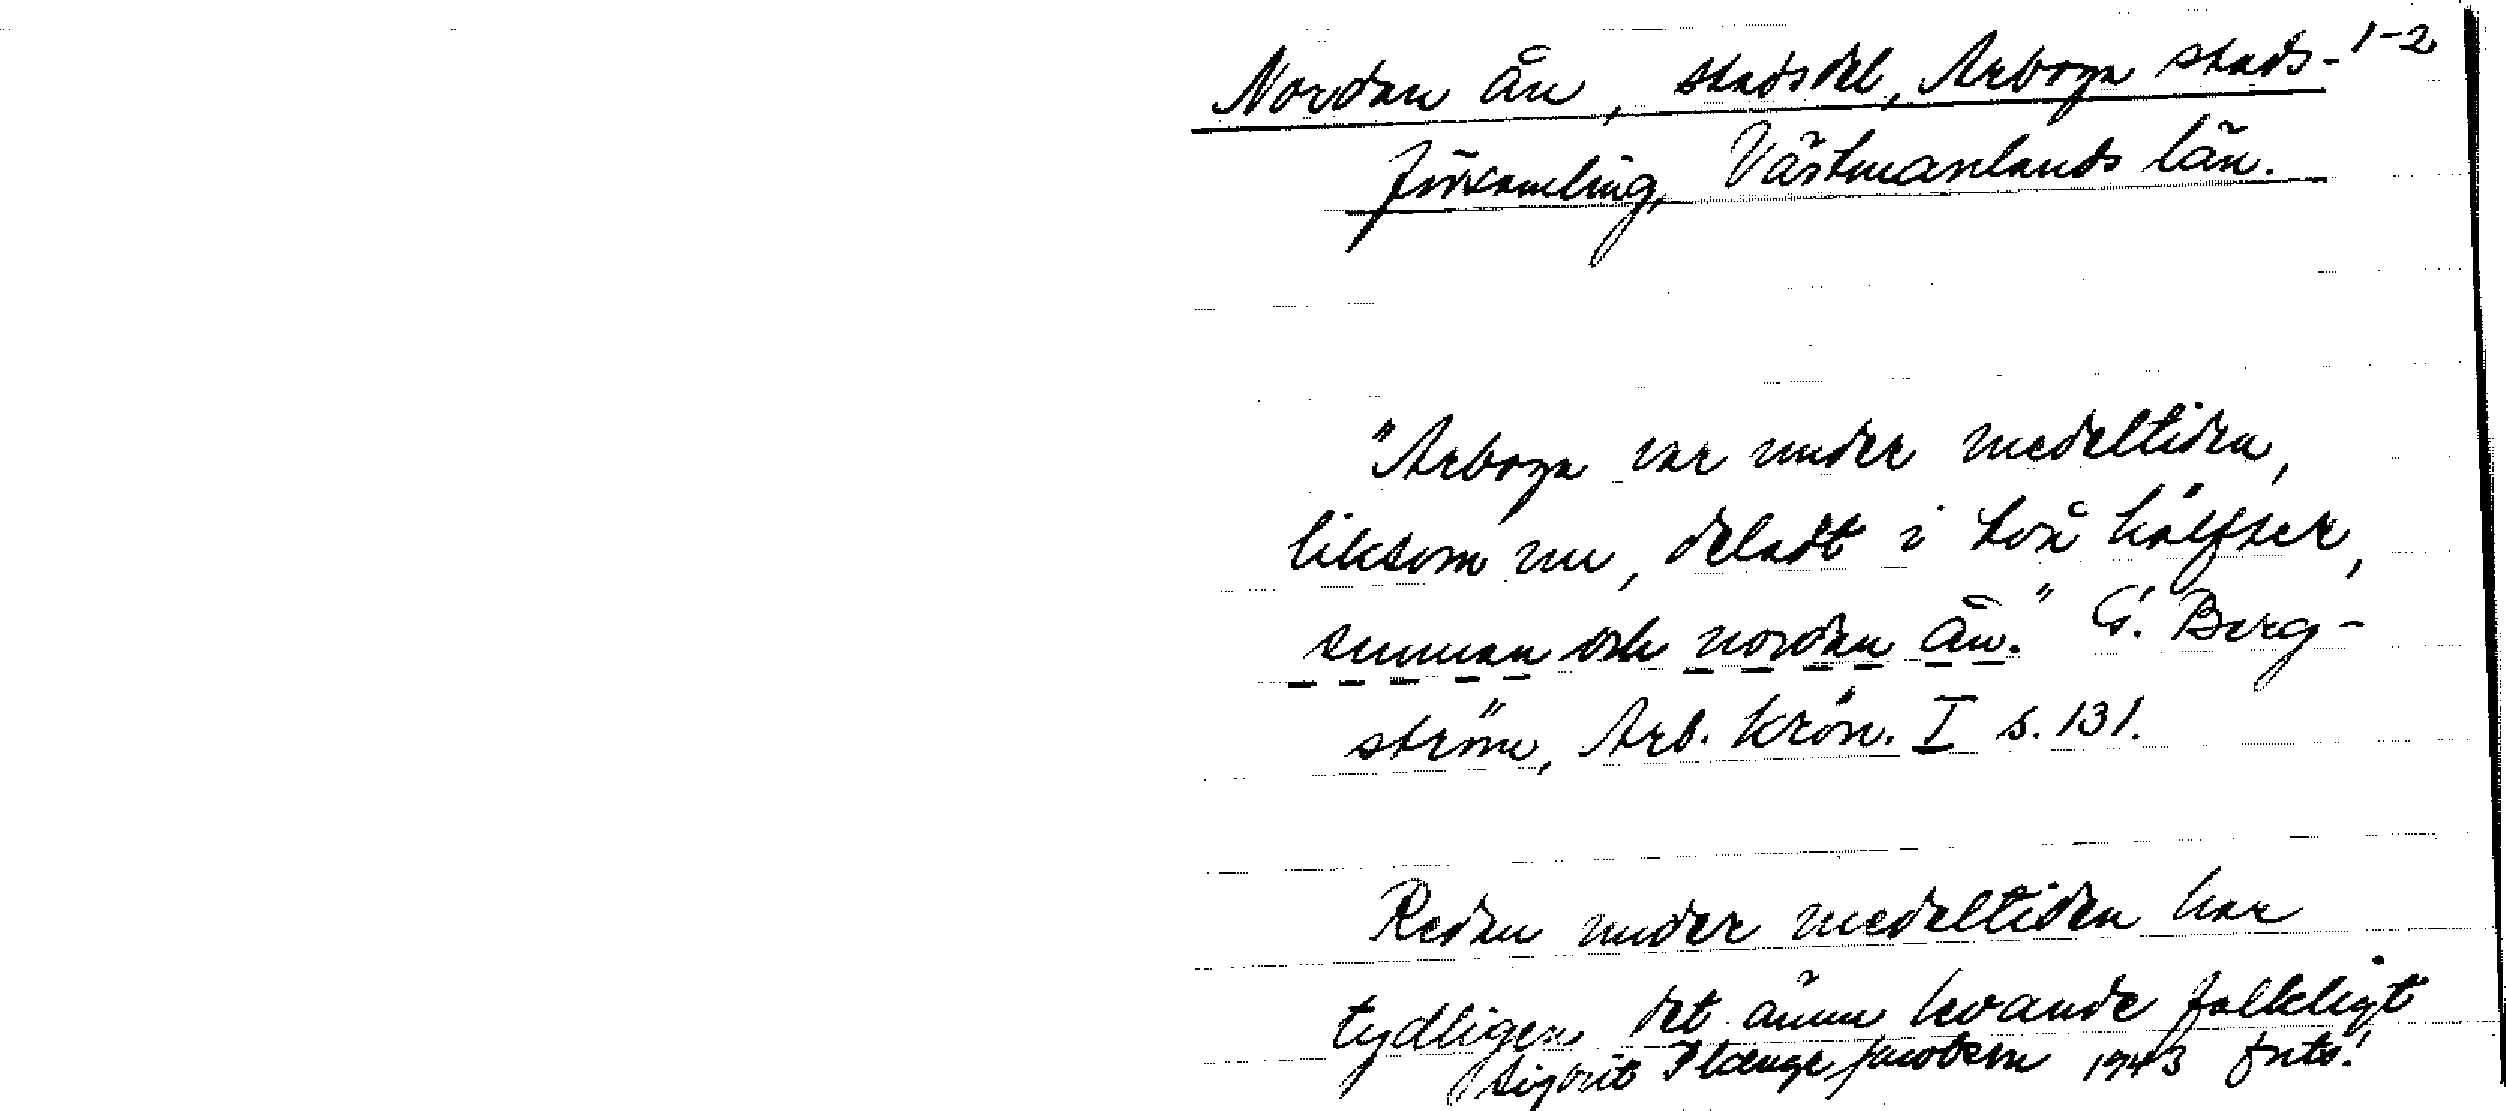 1-2
Nordan ån, stadsdel, Arboga stads-
församling, Västmanlands län.
"Arboga var under medeltiden,
liksom nu, deladt i två hälfter,
sunnan och nordan ån." G. Berg-
ström, Arb. krön. I s. 131.
Redan under medeltiden har
tydligen det ännu levande folkligt
Sigurd Jacobson 1943 forts!